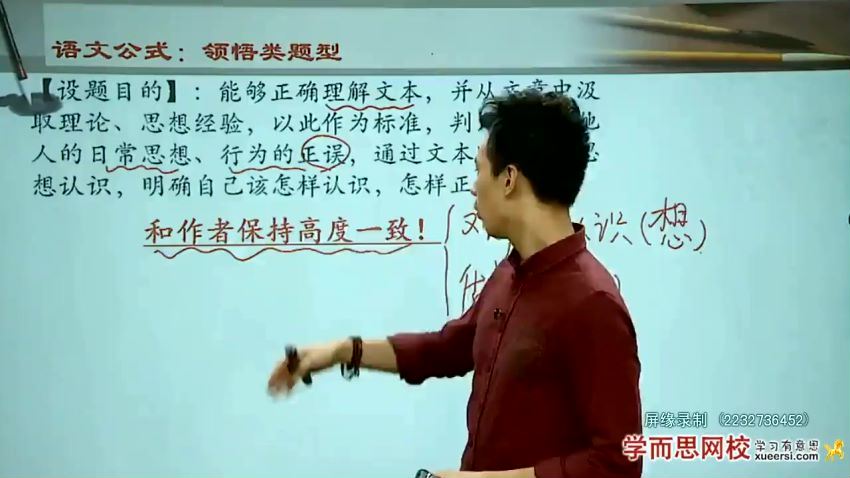 语文公式：领悟类题型
【设题目的】：能够正确理解文本，并从文章中汲
取理论、思想经验，以此作为标准，判
人的日常思想、行为的正误，通过文本
想认识，明确自己该怎样认识，怎样正
和作者保持高度一致！
识(想)
屏缘录制 (2232736452)
学而思网校 学习有意思
xueersi.com